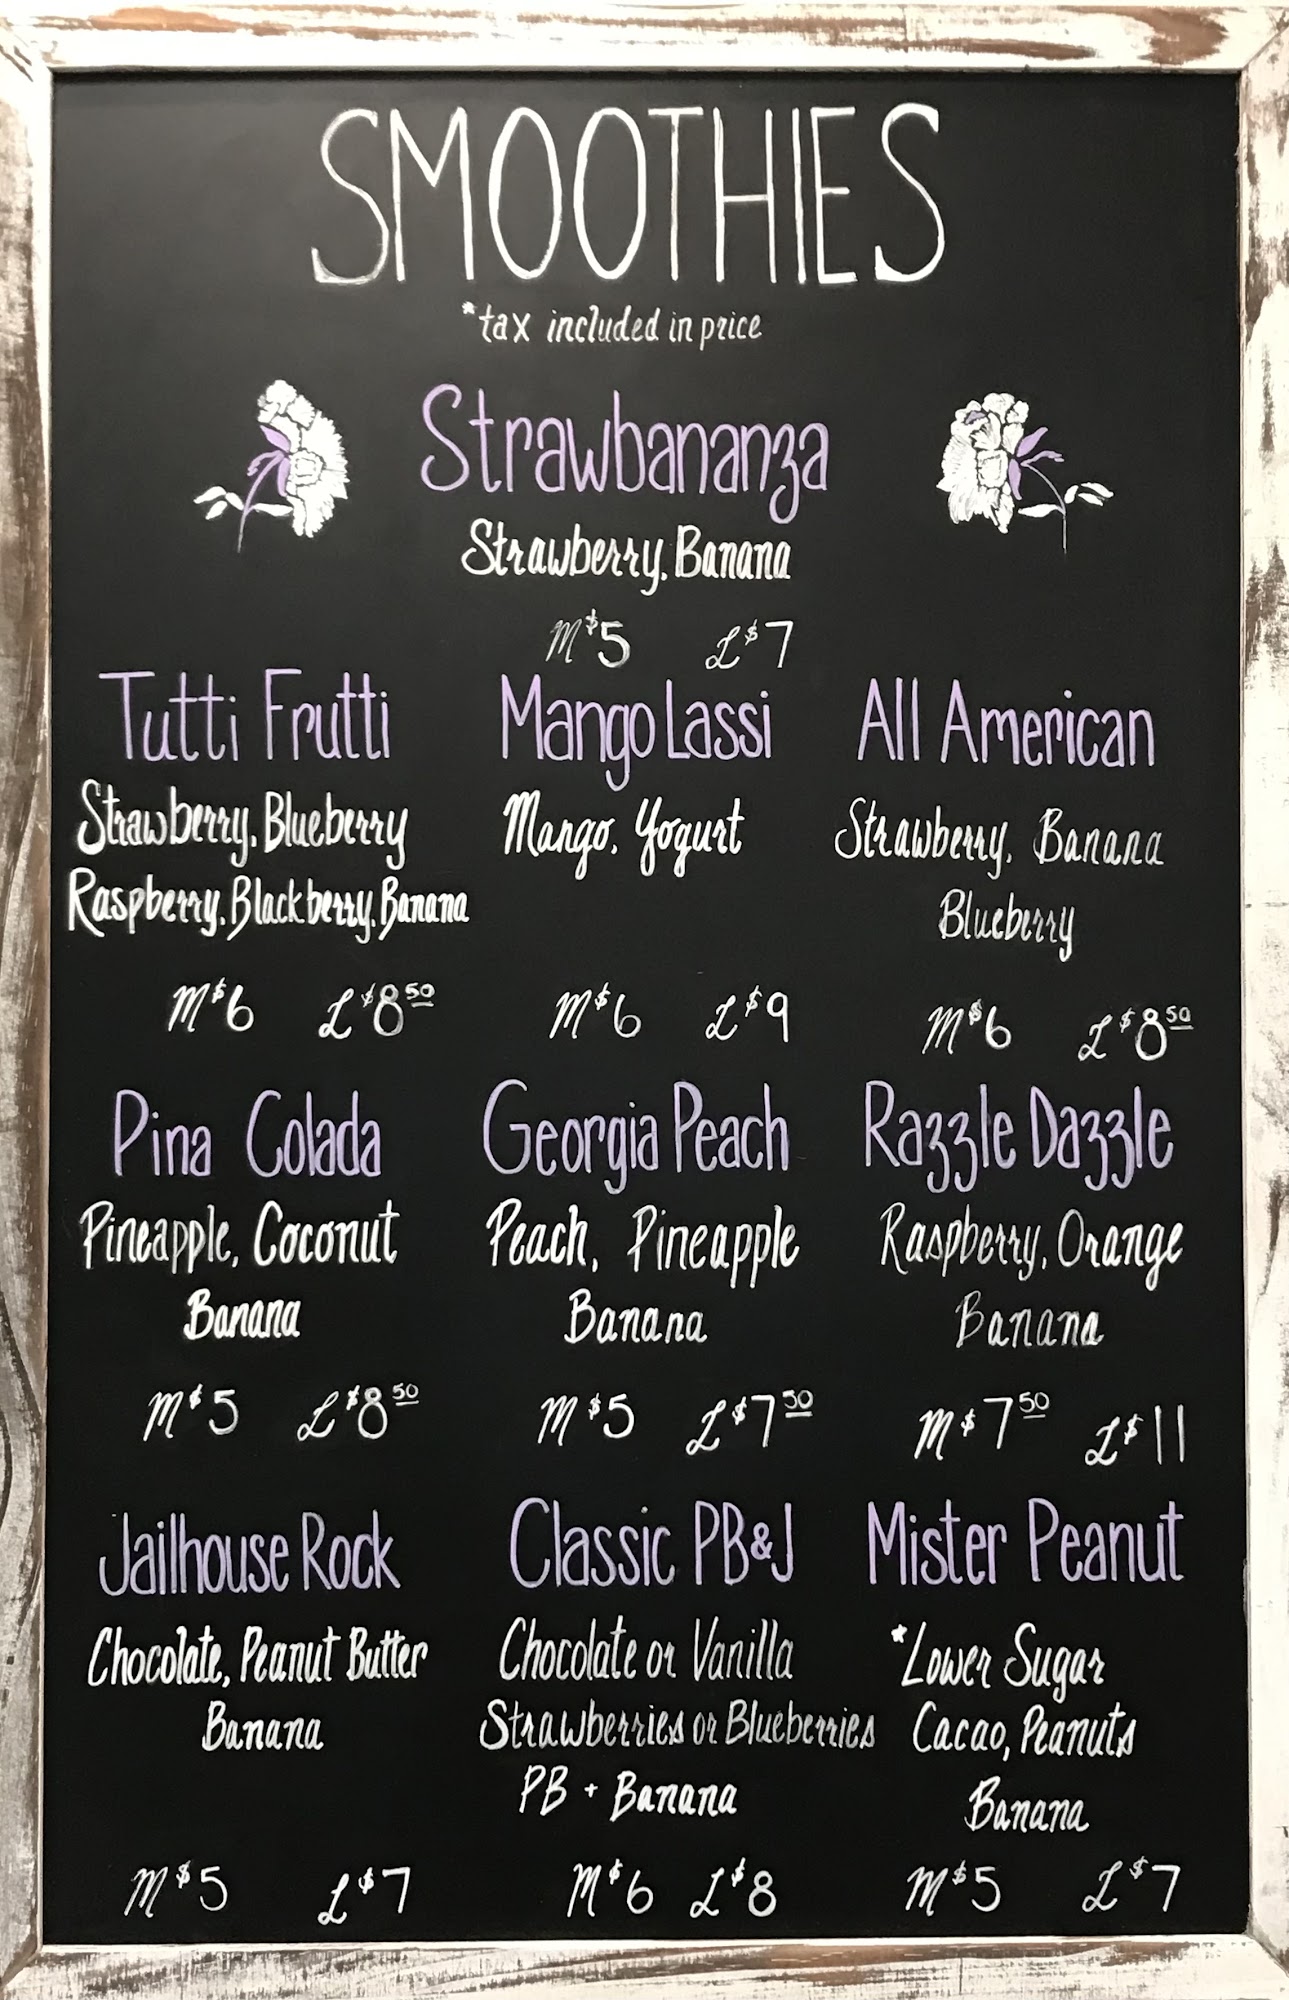 SMOOTHIES
*tax included in price
Strawbananza
Strawberry, Banana
M $5 L $7
Tutti Frutti
Strawberry, Blueberry
Raspberry, Blackberry, Banana
M $6 L $8 50
Mango Lassi
Mango, Yogurt
M $6 L $9
All American
Strawberry, Banana
Blueberry
M $6 L $8 50
Pina Colada
Pineapple, Coconut
Banana
M $5 L $8 50
Georgia Peach
Peach, Pineapple
Banana
M $5 L $7 50
Razzle Dazzle
Raspberry, Orange
Banana
M $7 50 L $11
Jailhouse Rock
Chocolate, Peanut Butter
Banana
M $5 L $7
Classic PB&J
Chocolate or Vanilla
Strawberries or Blueberries
PB + Banana
M $6 L $8
Mister Peanut
*Lower Sugar
Cacao, Peanuts
Banana
M $5 L $7